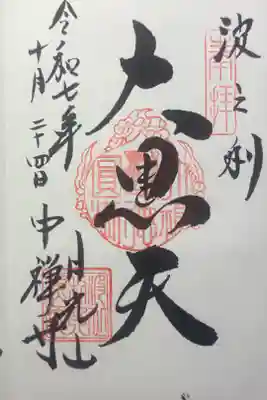 波之利
奉拝
大黒天
日光山
中禪寺
令和七年
十月二十四日